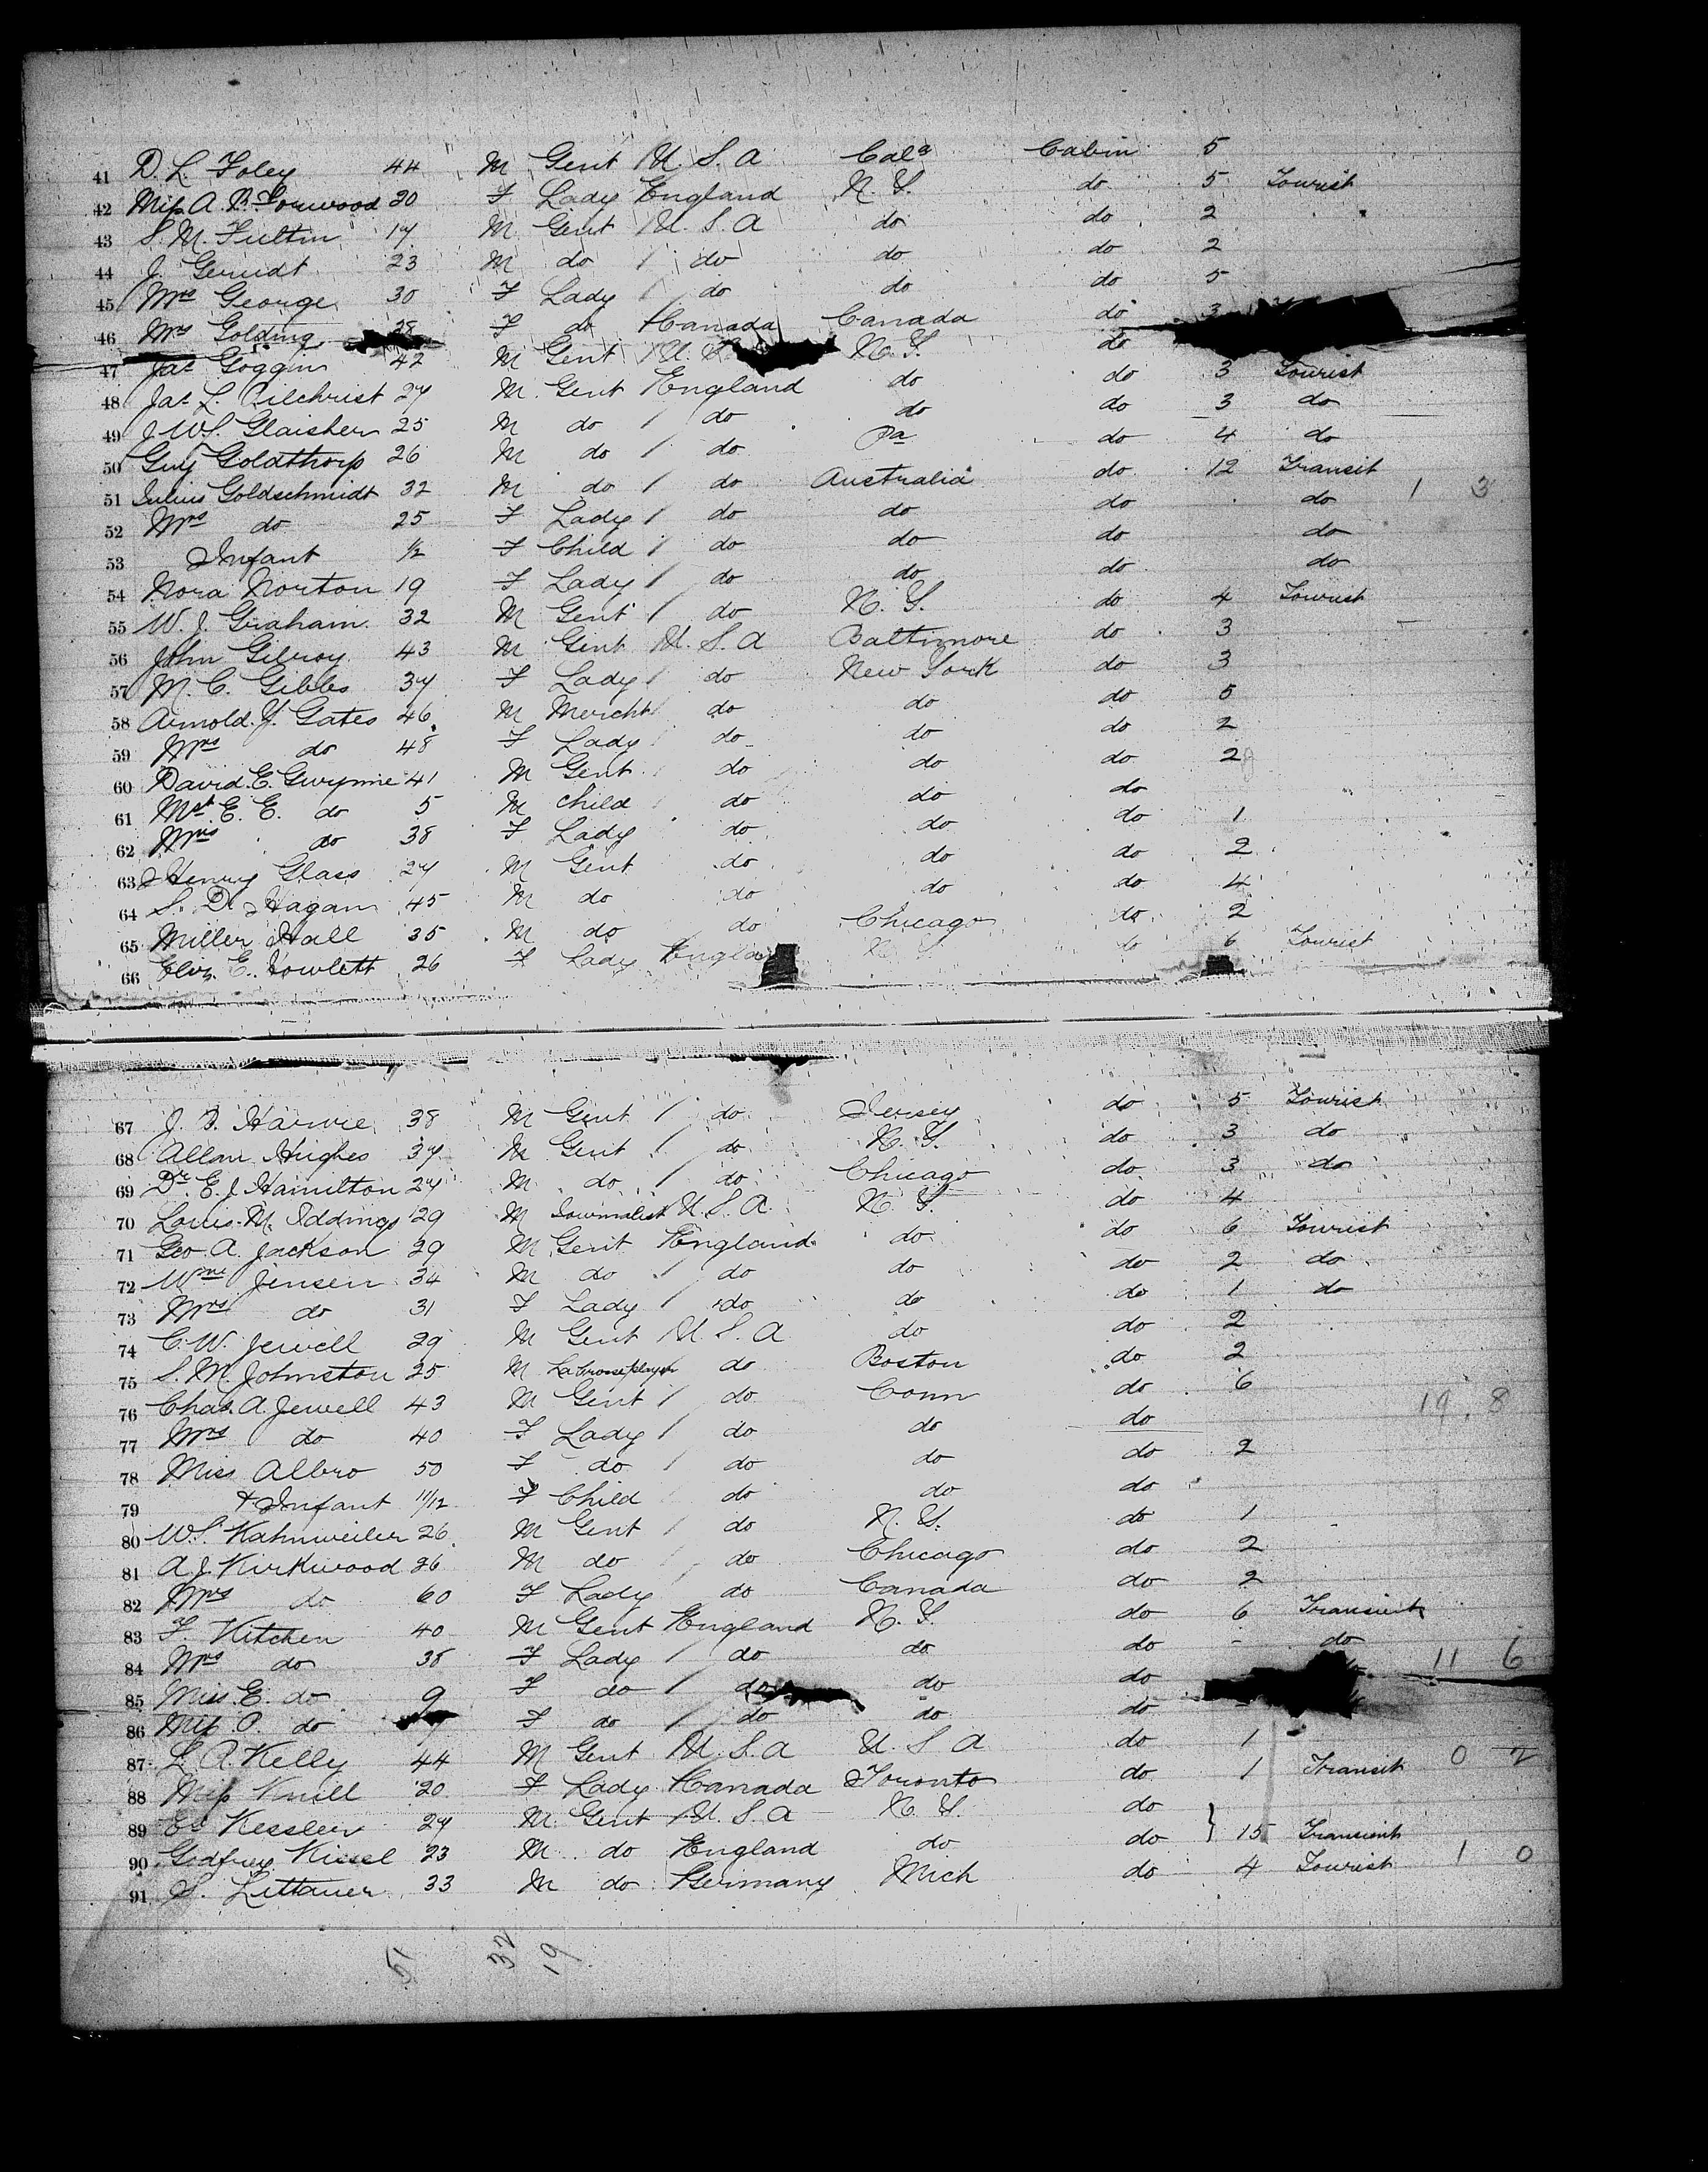 41 D. L. Foley 44 M Gent U. S. A Cala Cabin 5
42 Miss A. B. Forwood 20 F Lady England N. Y. do 5 Tourist
43 S. M. Fultin 17 M Gent U. S. A do do 2
44 J. Gerndt 23 M do do do do 2
45 Mrs George 30 F Lady do do do 5
46 Mrs Golding 28 F do Canada Canada do 3
47 Jas Goggin 42 M Gent U. S. N. Y. do
48 Jas L. Gilchrist 27 M Gent England do do 3 Tourist
49 J. W. S. Glaisher 25 M do do do do 3 do
50 Guy Goldthorp 26 M do do Pa do 4 do
51 Julius Goldschmidt 32 M do do Australia do 12 Transit 1 3
52 Mrs do 25 F Lady do do do do
53 Infant 1/2 F Child do do do do
54 Nora Norton 19 F Lady do do do do
55 W. J. Graham 32 M Gent do N. Y. do 4 Tourist
56 John Gilroy 43 M Gent U. S. A Baltimore do 3
57 M. C. Gibbs 37 F Lady do New York do 3
58 Arnold. Y. Gates 46 M Mercht do do do 5
59 Mrs do 48 F Lady do do do 2
60 David. E. Gwynne 41 M Gent do do do 2
61 Mst. E. E. do 5 M child do do do
62 Mrs do 38 F Lady do do do 1
63 Henry Glass 27 M Gent do do do 2
64 S. D. Hagan 45 M do do do do 4
65 Miller Hall 35 M do do Chicago do 2
66 Eliz. E. Howlett 26 F Lady Engla N. Y. do 6 Tourist
67 J. B. Harvie 38 M Gent do Jersey do 5 Tourist
68 Allan Hughes 37 M Gent do N. Y. do 3 do
69 Dr E. J. Hamilton 27 M do do Chicago do 3 do
70 Louis. M. Iddings 29 M Journalist U. S. A. N. Y. do 4
71 Geo. A. Jackson 29 M Gent England do do 6 Tourist
72 Wm Jensen 34 M do do do do 2 do
73 Mrs do 31 F Lady do do do 1 do
74 C. W. Jewell 29 M Gent U. S. A do do 2
75 S. M. Johnston 25 M LaCrosse player do Boston do 2
76 Chas. A. Jewell 43 M Gent do Conn do 6 19 8
77 Mrs do 40 F Lady do do do
78 Miss Albro 50 F do do do do 2
79 + Infant 11/12 F Child do do do
80 W. S. Kahnweiler 26 M Gent do N. Y. do 1
81 A. J. Kirkwood 26 M do do Chicago do 2
82 Mrs do 60 F Lady do Canada do 2
83 F. Kitchen 40 M Gent England N. Y. do 6 Transient
84 Mrs do 38 F Lady do do do - do 11 6
85 Miss. E. do 9 F do do do do
86 Miss O. do F do do do do
87 L. A. Kelly 44 M Gent U. S. A U. S. A do 1
88 Miss Knill 20 F Lady Canada Toronto do 1 Transit 0 2
89 Ed Kessler 27 M Gent U. S. A N. Y. do
90 Godfrey Kissel 23 M do England do do } 15 Transient
91 S. Littauer 33 M do Germany Mich do 4 Tourist 1 0
51 32 19